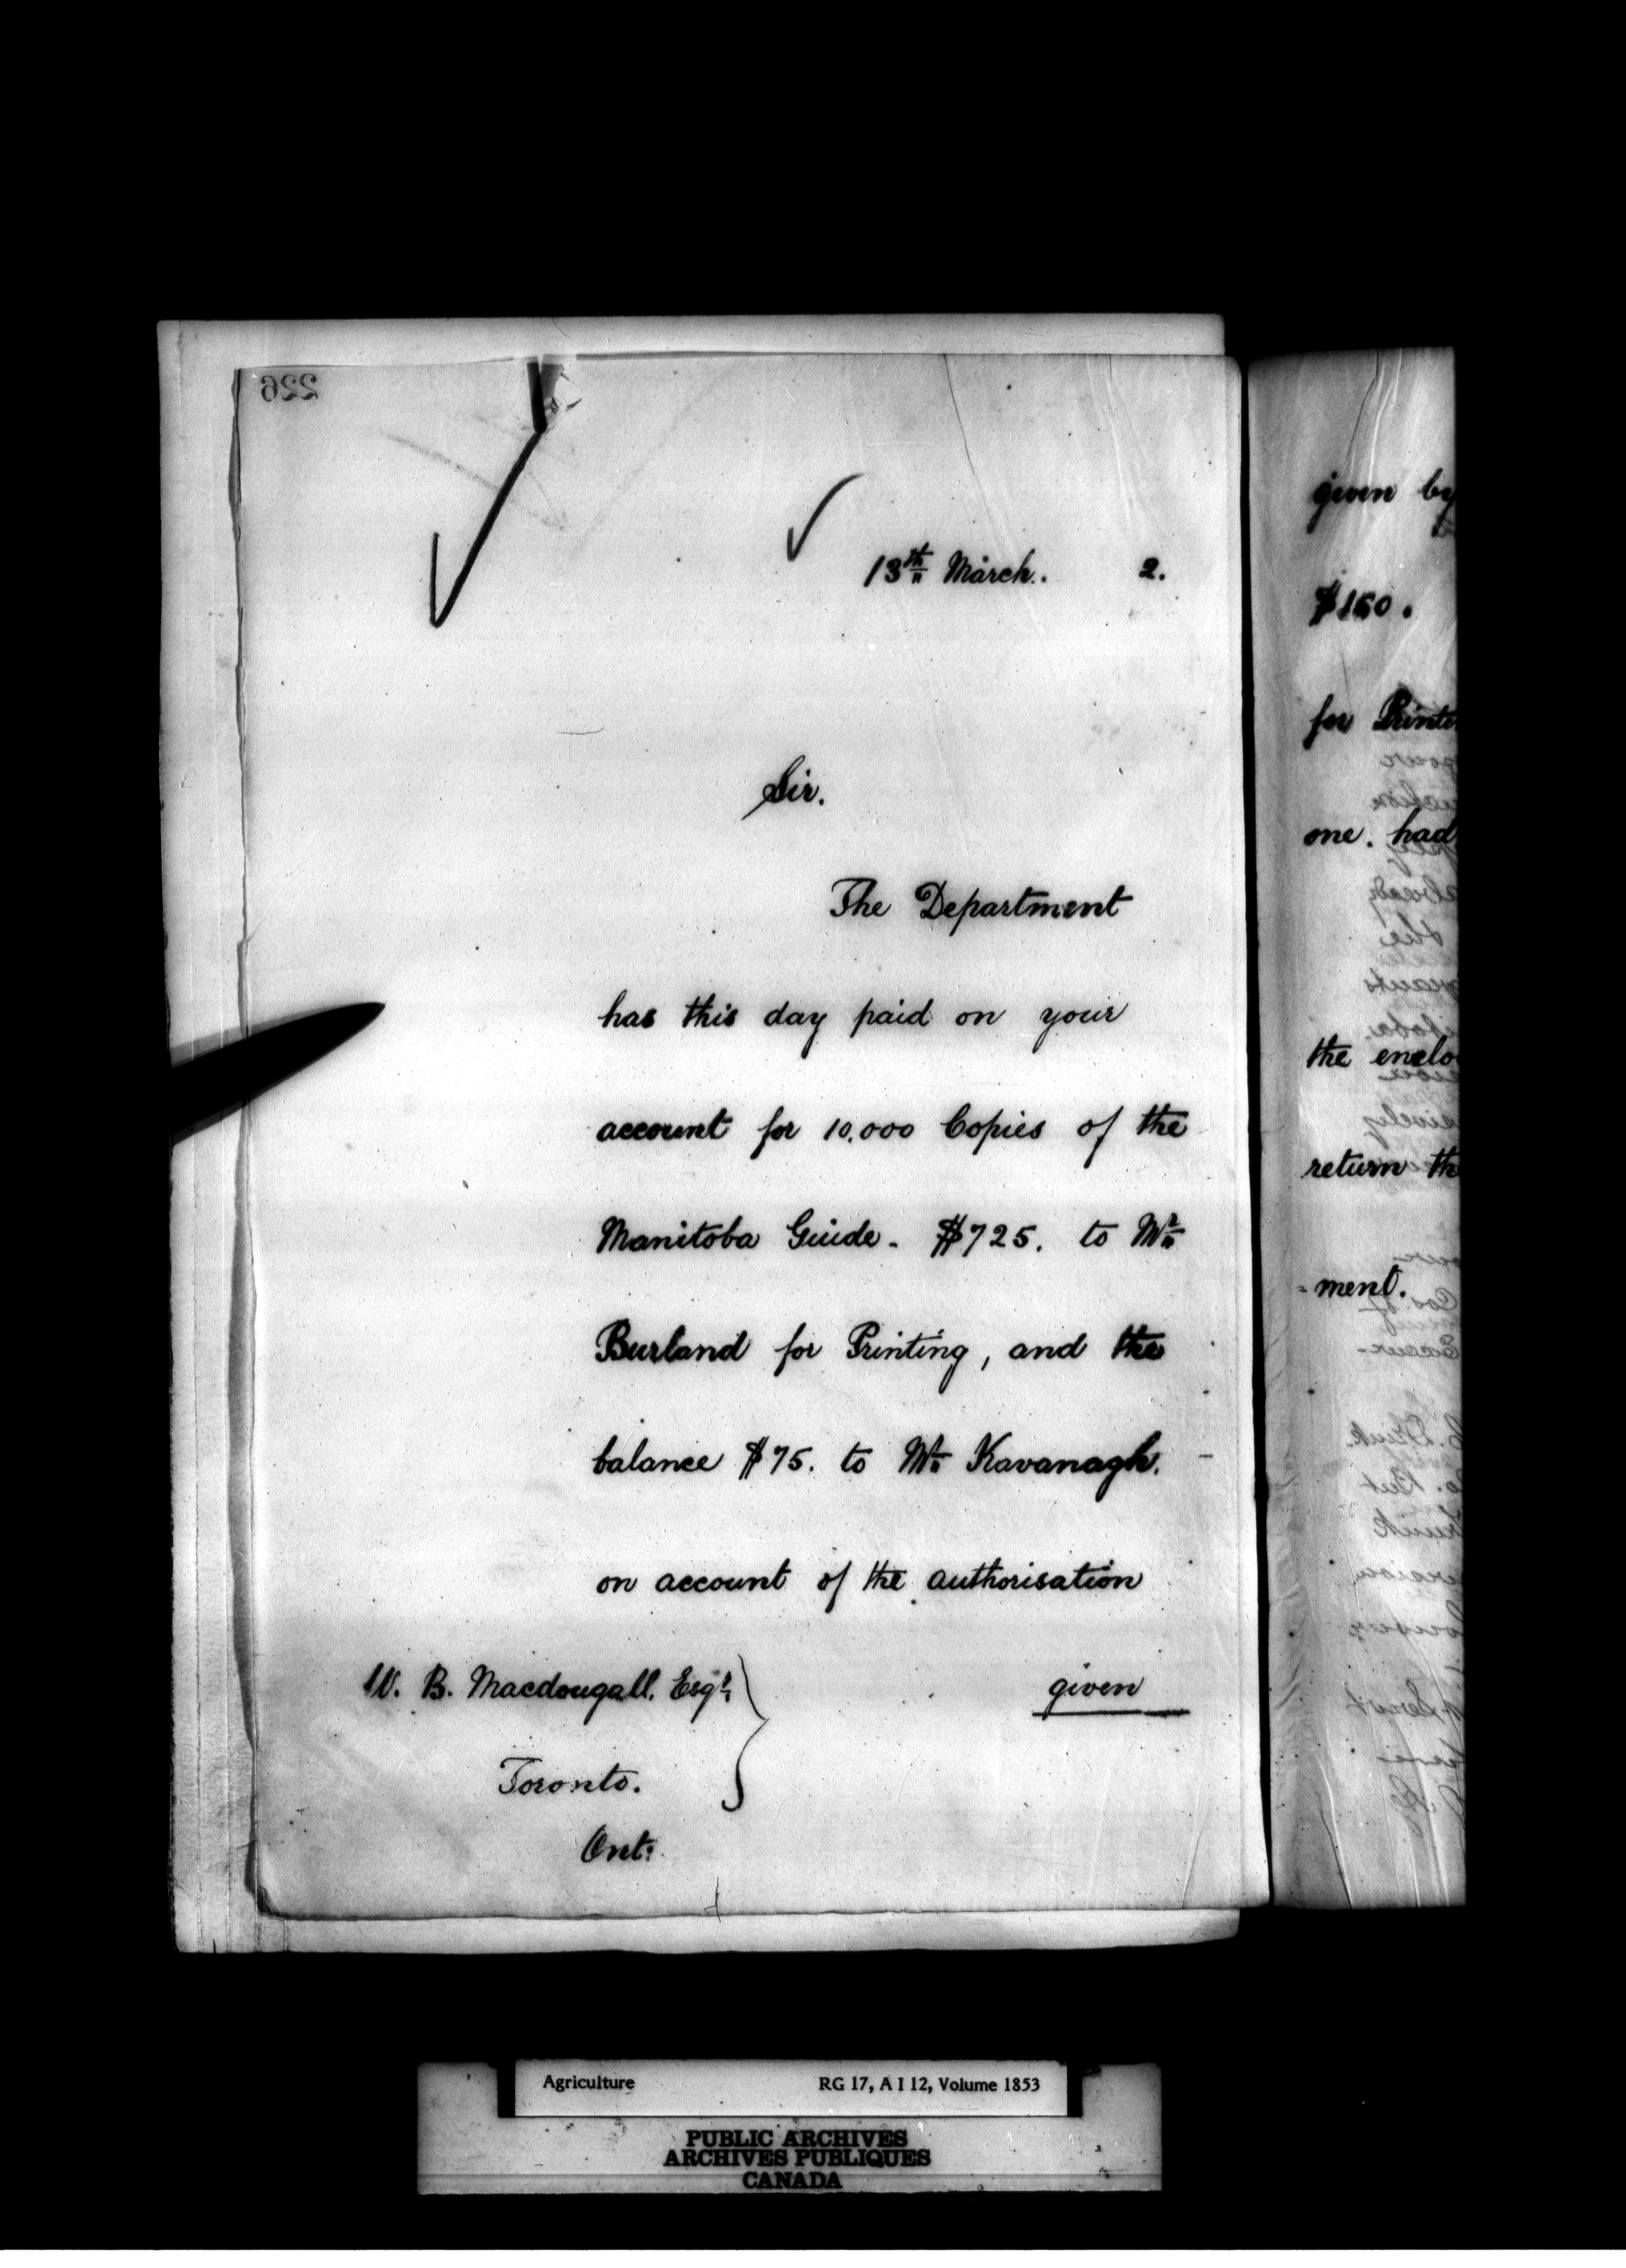 226
13th March. 2.
Sir.
The Department
has this day paid on your
account for 10,000 Copies of the
Manitoba Guide - $725. to Mr
Burland for Printing, and the
balance $75. to Mr Kavanagh.
on account of the authorisation
given
W. B. Macdougall, Esqr
Toronto.
Ont:
given by
$150.
for
one. had
the
return
=ment.
Agriculture RG 17, A I 12, Volume 1853
PUBLIC ARCHIVES
ARCHIVES PUBLIQUES
CANADA